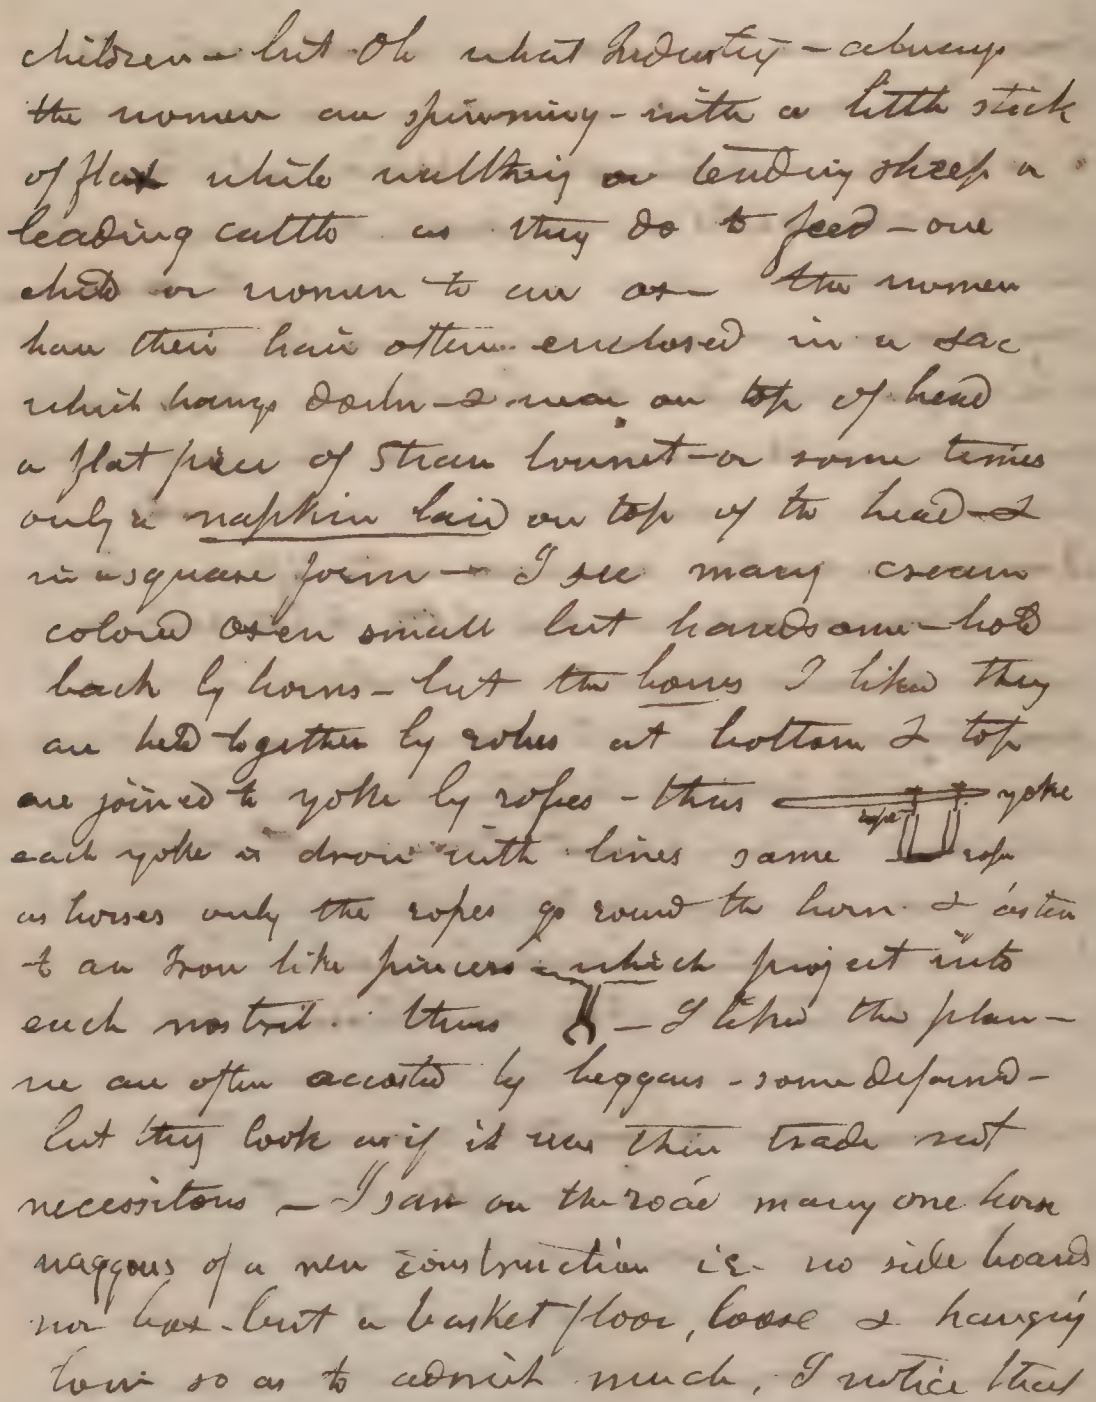 children – but Oh what Industry – always
the women are spinning – with a little stick
of flax while walking or tending sheep or
leading cattle as they do to feed – one
child or women to an ox – the women
have their hair often enclosed in a sac
which hangs down – & wear on top of head
a flat piece of Straw bonnet – or some times
only a napkin laid on top of the head – &
in a square form – I see many cream
colored oxen small but handsome – hold
back by horns – but the bows I liked they
are held together by robes at bottom & top
are joined to yoke by ropes – thus yoke
rope
each yoke is drove with lines same rope
as horses only the ropes go round the horn & fasten
to an Iron like pincers – which project into
each nostril.. thus – I liked the plan –
we are often accosted by beggars – some deformed –
but they look as if it was their trade not
necessitous – I saw on the road many one horse
waggons of a new construction i.e. no side boards
nor box – but a basket floor, loose & hanging
low so as to admit much, I notice that